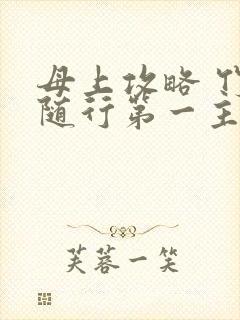 母上攻略
随行第一主
芙蓉一笑